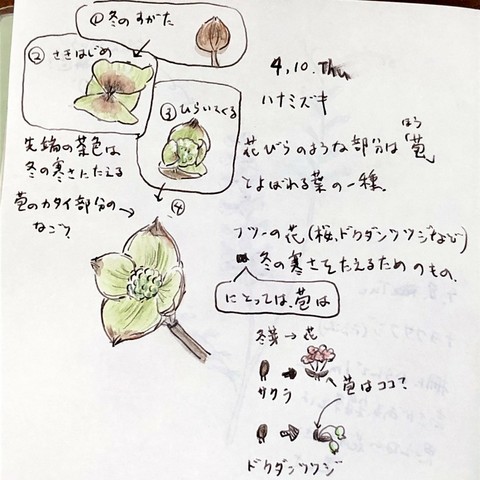 ①冬のすがた
②さきはじめ
③ひらいてくる
④
先端の茶色は
冬の寒さにたえる
苞のカタイ部分の
なごり
4,10.Thu
ハナミズキ
花びらのような部分は「苞」
ほう
とよばれる葉の一種.
フツーの花(桜、ドウダンツツジなど)
にとっては、苞は
冬の寒さをたえるためのもの.
冬芽→花
サクラ
苞はココ?
ドウダンツツジ